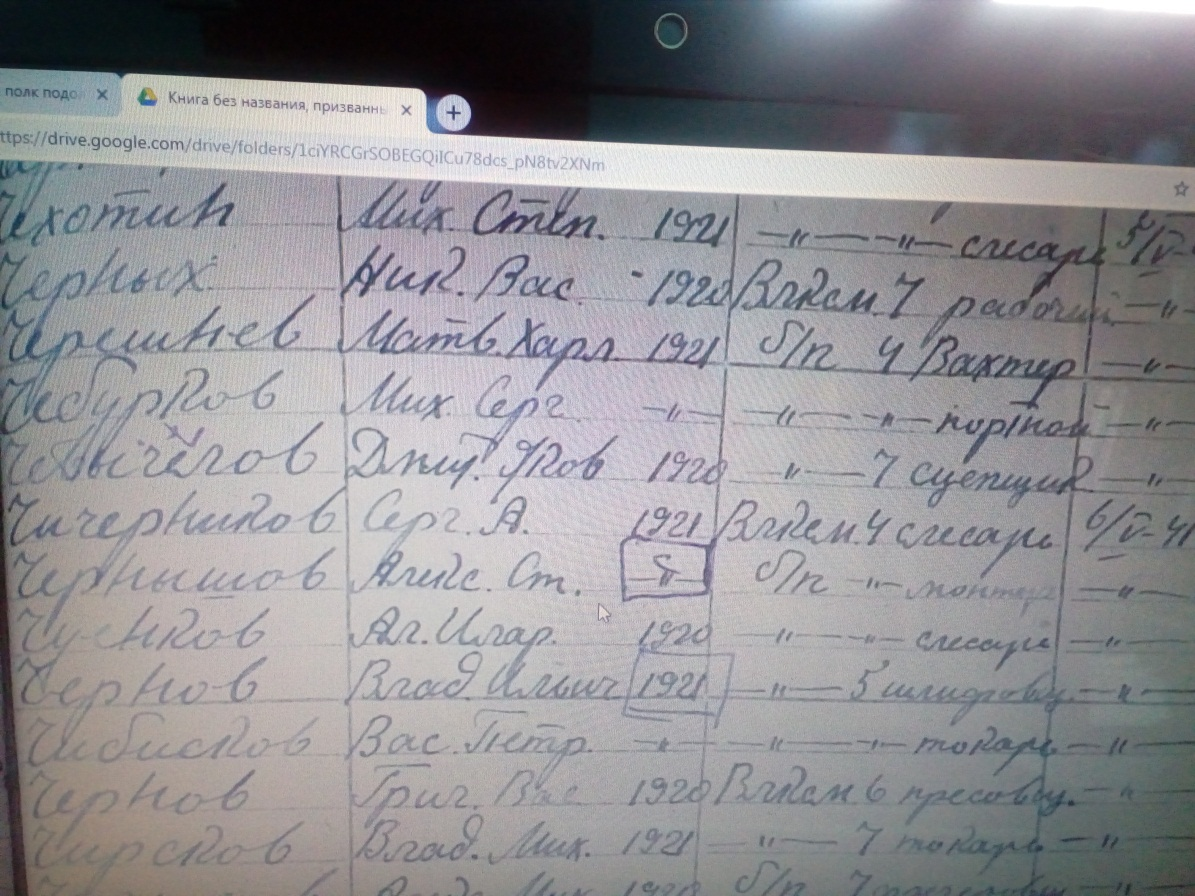 полк подо
Книга без названия, призванн
ttps://drive.google.com/drive/folders/1ciYRCGrSOBEGQilCu78dcs_pN8tv2XNm
ехотин Мих. Степ. 1921 —"— —"— слесарь 5/V-
Черных Ник. Вас. 1920 Влксм. 7 рабочий —"—
Черешнев Матв. Харл. 1921 б/п 4 Вахтер —"—
Чебурков Мих. Серг. —"— —"— —"— портной —"—
Дмит. Яков 1920 —"— 7 сцепщик —"—
Чичерников Серг. А. 1921 Влксм. 4 слесарь 6/V-41
Чернышов Алекс. Ст. —"— б/п —"— монтер —"—
Ал. Илар. 1920 —"— —"— слесарь —"—
Чернов Влад. Ильич 1921 —"— 5 —"—
Чибисков Вас. Петр. —"— —"— —"— токарь —"—
Чернов Григ. Вас 1920 Влксм 6 пресовщ. —"—
Чирсков Влад. Мих. 1921 —"— 7 токарь —"—
Мих. 1920 б/п 7